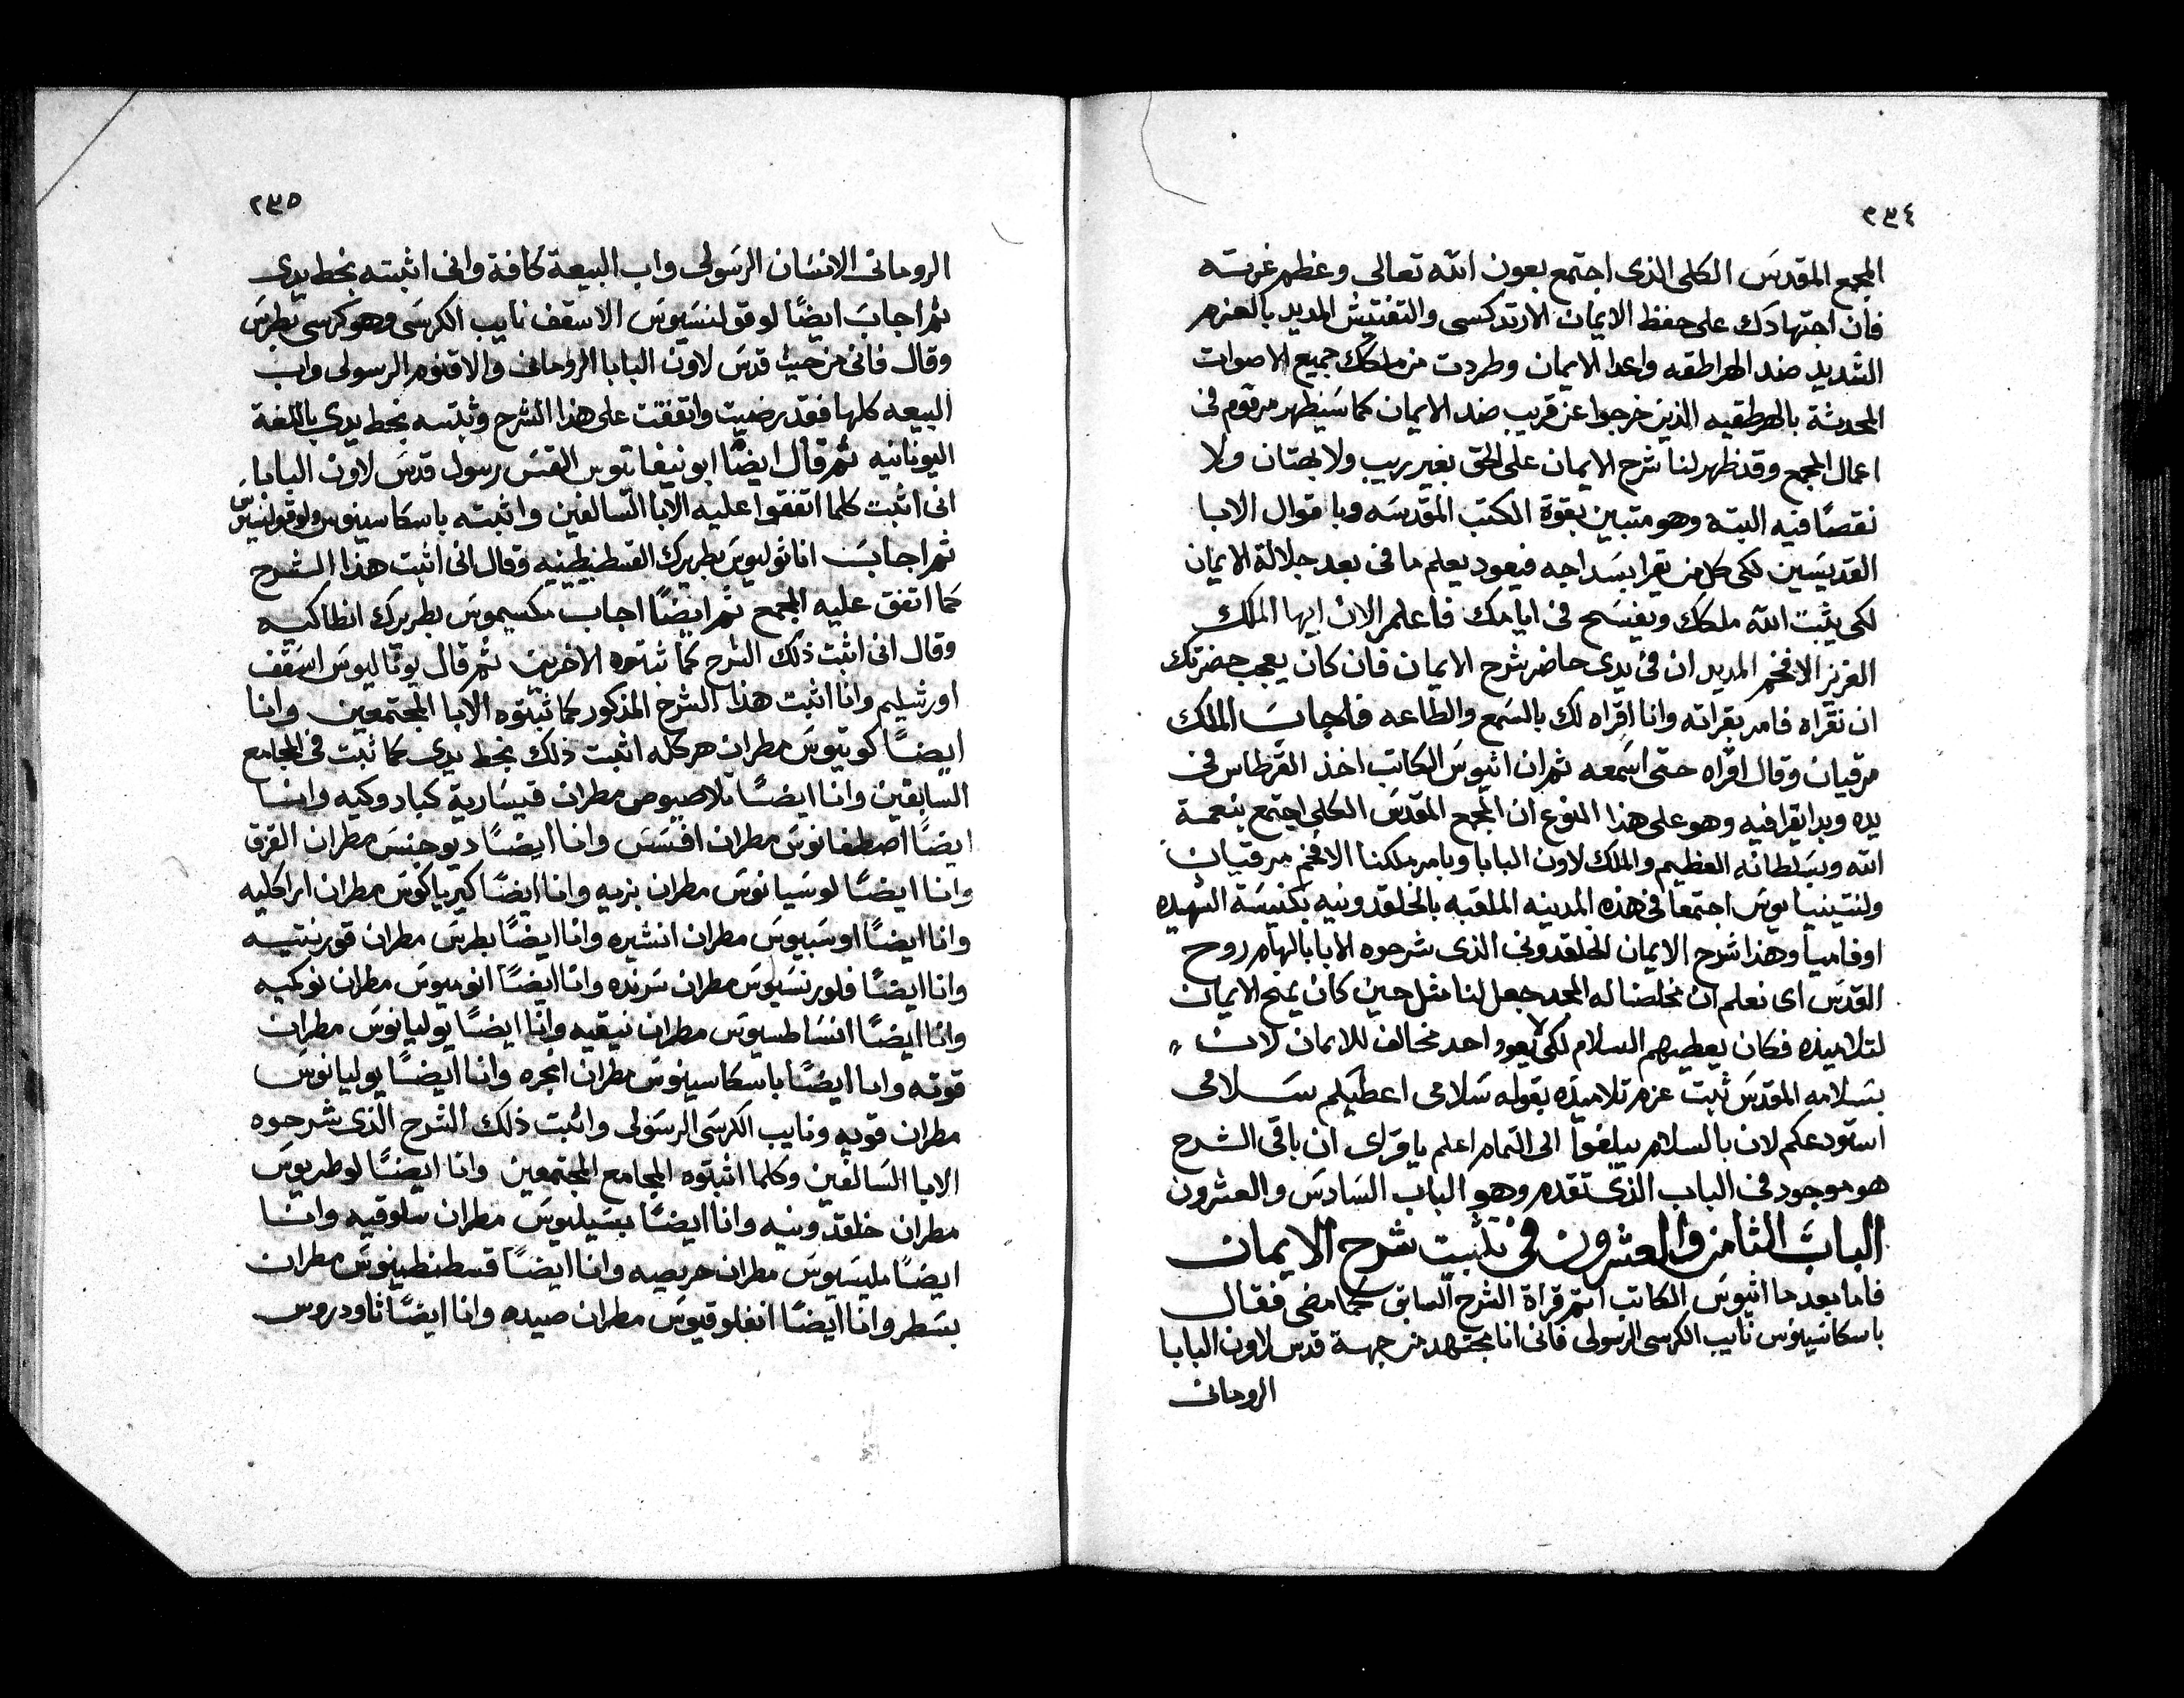 ٢٣٤
المجمع المقدس الكلى الذى اجتمع بعون الله تعالى وعظم عزمته
فان اجتهادك على حفظ الايمان الارتدكسى والتفتيش المديد بالعزم
الشديد ضد الهراطقه واعدا الايمان وطردت من ملكك جميع الاصوات
المحدثة بالهرطقيه الذين خرجوا عن قريب ضد الايمان كما سنظهر مرقوم فى
اعمال المجمع وقد ظهر لنا شرح الايمان على الحق بغير ريب ولا بهتان ولا
نقصًا فيه البتة وهو متبين بقوة الكتب المقدسه وباقوال الابا
القديسين لكى كل من يقرا بسداجه فيعود يعلم ما فى بعد جلالة الايمان
لكى يثبت الله ملكك ويفسح فى ايامك فاعلم الان ايها الملك
العزيز الافخم المديد ان فى يدى حاضر شرح الايمان فان كان يعجب حضرتك
ان نقراه فامر بقراته وانا اقراه لك بالسمع والطاعه فاجاب الملك
مرقيان وقال اقراه حتى اسمعه ثم ان اتيوس الكاتب اخذ القرطاس فى
يده وبدا يقرا فيه وهو على هذا النوع ان المجمع المقدس الكلى اجتمع بنعمة
الله وبسلطانه العظيم والملك لاون البابا وبامر ملكنا الافخم مرقيان
ولنتينيانوس اجتمعا فى هذه المدينه الملقبه بالخلقدونيه بكنيسة الشهيده
اوفاميا وهذا شرح الايمان الخلقدونى الذى شرحوه الابا بالهام روح
القدس اى نعلم ان مخلصنا له المجد جعل لنا مثل حين كان يمنح الايمان
لتلاميذه فكان يعطيهم السلام لكى لا يعود احد مخالف للايمان لان
بسلامه المقدس ثبت عزم تلاميذه بقوله سلامى اعطيكم سلامى
استودعكم لان بالسلام يبلغوا الى التمام اعلم يا قراى ان باقى الشرح
هو موجود فى الباب الذى تقدم وهو الباب السادس والعشرون
الباب الثامن والعشرون فى تثبت شرح الايمان
فاما بعد ما اتيوس الكاتب اتم قراة الشرح السابق كما مضى فقال
باسكاسينوس نايب الكرسى الرسولى فانى انا مجتهد من جهة قدس لاون البابا
الروحانى
٢٣٥
الروحانى الانسان الرسولى واب البيعة كافة وانى اثبته بخط يدى
ثم اجاب ايضًا لوقولنسيوس الاسقف نايب الكرسى وهو كرسى بطرس
وقال فانى من حيث قدس لاون البابا الروحانى والاقنوم الرسولى واب
البيعه كلها فقد رضيت واتفقت على هذا الشرح وثبتسه بخط يدى باللغة
اليونانيه ثم قال ايضًا ابونيفاتوس القس رسول قدس لاون البابا
انى اثبت كلما اتفقوا عليه الابا السالفين واثبته باسكاسينوس ولوقولنسيوس
ثم اجاب اناثوليوس بطريرك القسطنطينيه وقال انى اثبت هذا الشرح
كما اتفق عليه المجمع ثم ايضًا اجاب مكسيموس بطريرك انطاكيه
وقال انى اثبت ذلك الشرح كما ثبتوه الاخرين ثم قال يوناليوس اسقف
اورشليم وانا اثبت هذا الشرح المذكور كما ثبتوه الابا المجتمعين وانا
ايضًا كوينتوس مطران هركله اثبت ذلك بخط يدى كما ثبت فى المجامع
السابقين وانا ايضًا تلاصيوس مطران قيسارية كبادوكيه وانا
ايضًا اصطفانوس مطران افسس وانا ايضًا ديوجنس مطران القزق
وانا ايضًا لوسيانوس مطران بزيه وانا ايضًا كيرياكوس مطران ايراكليه
وانا ايضًا اوسبيوس مطران انشيره وانا ايضًا بطرس مطران قورنتيه
وانا ايضًا فلورنسيوس مطران سرنده وانا ايضًا انوميوس مطران نوكميه
وانا ايضًا انسطاسيوس مطران نيقيه وانا ايضًا يوليانوس مطران
قوته وانا ايضًا باسكاسينوس مطران ابجره وانا ايضًا يوليانوس
مطران قويه ونايب الكرسى الرسولى واثبت ذلك الشرح الذى شرحوه
الابا السالفين وكلما اثبتوه المجامع المجتمعين وانا ايضًا لوطريوس
مطران خلقدونيه وانا ايضًا بسيليوس مطران سلوقيه وانا
ايضًا مليسيوس مطران حريصه وانا ايضًا قسطنطينوس مطران
بسطر وانا ايضًا انفلوقيوس مطران صيده وانا ايضًا ثاودروس